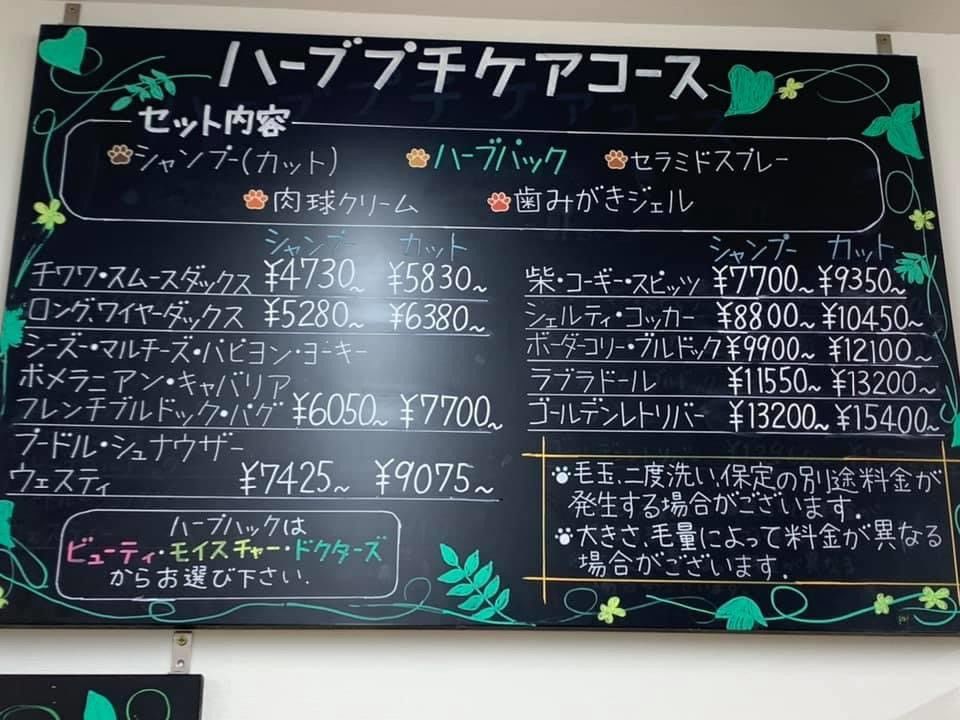 ハーブプチケアコース
セット内容
シャンプー(カット) ハーブパック セラミドスプレー
肉球クリーム 歯みがきジェル
シャンプー カット
チワワ・スムースダックス ¥4730~ ¥5830~
ロング、ワイヤーダックス ¥5280~ ¥6380~
シーズー・マルチーズ・パピヨン・ヨーキー
ポメラニアン・キャバリア
フレンチブルドック・パグ ¥6050~ ¥7700~
プードル・シュナウザー
ウェスティ ¥7425~ ¥9075~
シャンプー カット
柴・コーギー・スピッツ ¥7700~ ¥9350~
シェルティ・コッカー ¥8800~ ¥10450~
ボーダコリー・ブルドック ¥9900~ ¥12100~
ラブラドール ¥11550~ ¥13200~
ゴールデンレトリバー ¥13200~ ¥15400~
ハーブパックは
ビューティ・モイスチャー・ドクターズ
からお選び下さい.
毛玉、二度洗い、保定の別途料金が
発生する場合がございます.
大きさ、毛量によって料金が異なる
場合がございます.